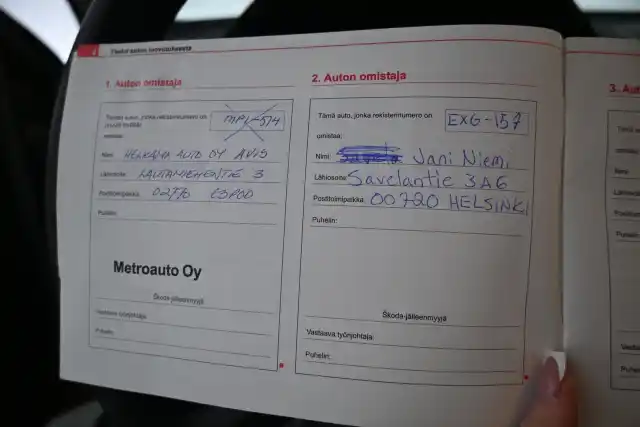 4
Tiedot auton omistuksesta
1. Auton omistaja
Tämän auton, jonka rekisterinumero on
MPL-514
omistaa:
Nimi: HELKAMA AUTO OY AVIS
Lähiosoite: LAUTAMIEHENTIE 3
Postitoimipaikka: 02770 ESPOO
Puhelin:
Metroauto Oy
Škoda-jälleenmyyjä
Vastaava työnjohtaja:
Puhelin:
2. Auton omistaja
Tämä auto, jonka rekisterinumero on
EXG-157
omistaa:
Nimi: Jani Niemi
Lähiosoite: Savelantie 3 A6
Postitoimipaikka: 00720 HELSINKI
Puhelin:
Škoda-jälleenmyyjä
Vastaava työnjohtaja:
Puhelin:
3. Aut
Nimi:
Puhelin